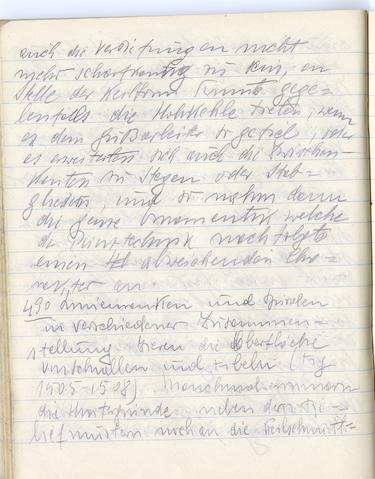 auch die Vertiefungen nicht
mehr scharfkantig zu sein, an
Stelle der Keilform kannte gege-
benfalls die Hohlkehle treten, wenn
es dem Gußarbeiter so gefiel, oder
es erweiterten sich auch die Zwischen-
kanten zu Stegen oder Stab-
gliedern, und so nahm denn
die ganze Ornamentik welche
der Punztechnik nachfolgte
einen abweichenden Cha-
rakter an.
490 Linienranken und Spiralen
in verschiedener Zusammen-
stellung zieren die Oberfläche
von Schnallen und Fibeln (Fig
1505-1508). Manchmal erinnern
die Hintergründe neben den Re-
liefmustern noch an die Keilschnitt-